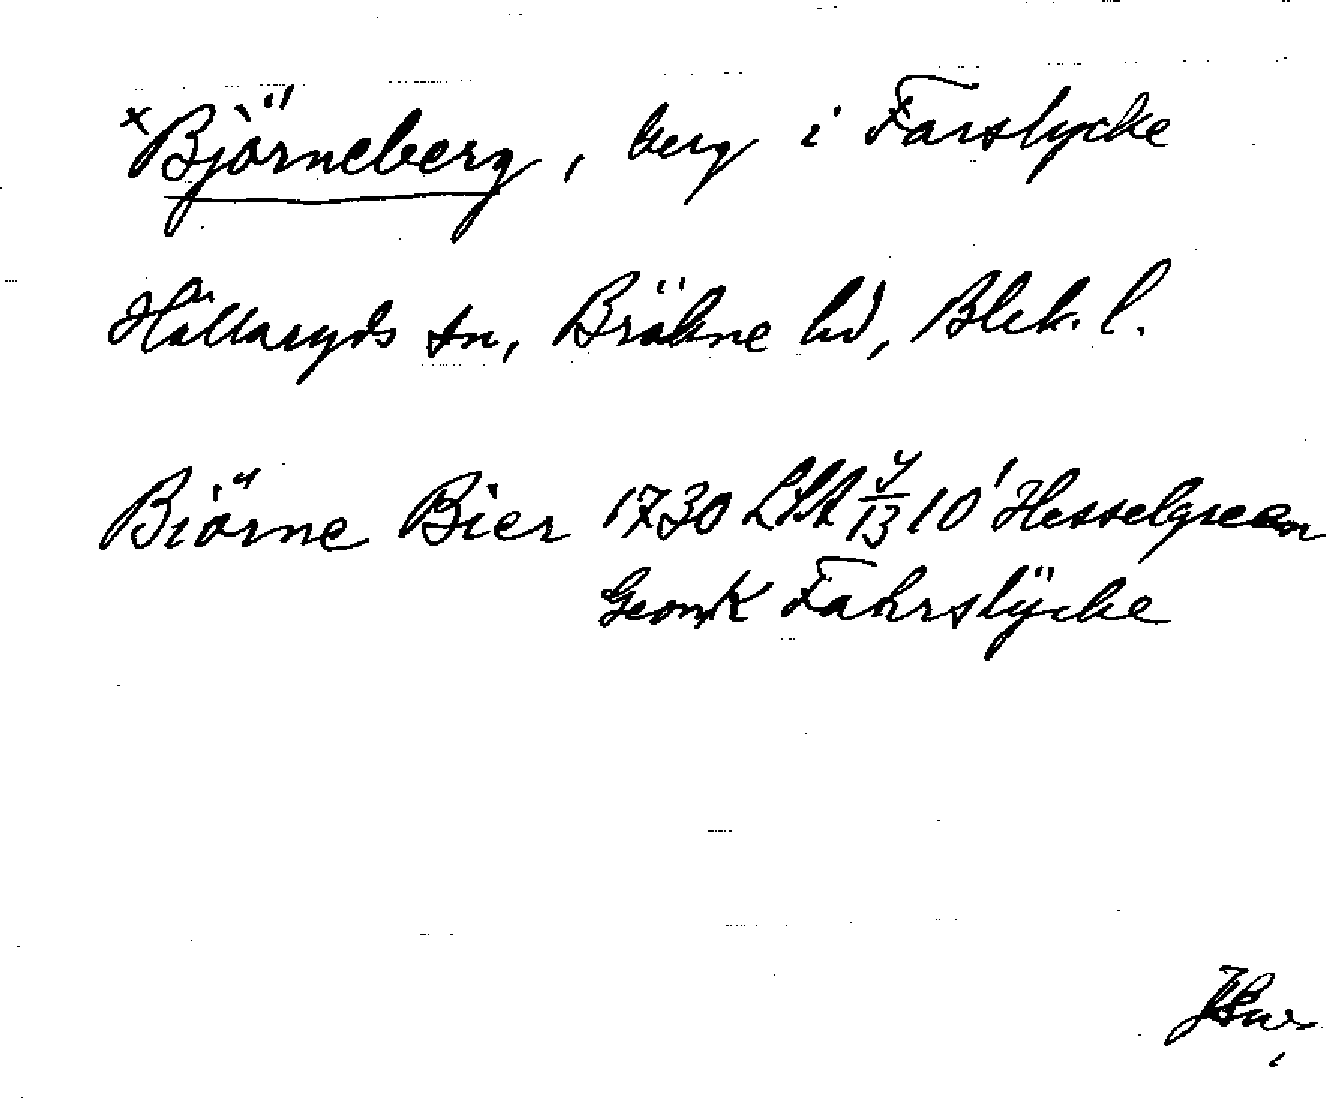 *Björneberg, berg i Farslycke
Hällaryds sn, Bräkne hd, Blek. l.
Biörne Bier 1730 LSA 4/13 10' Hesselgreen
GeomK Fahrslÿcke